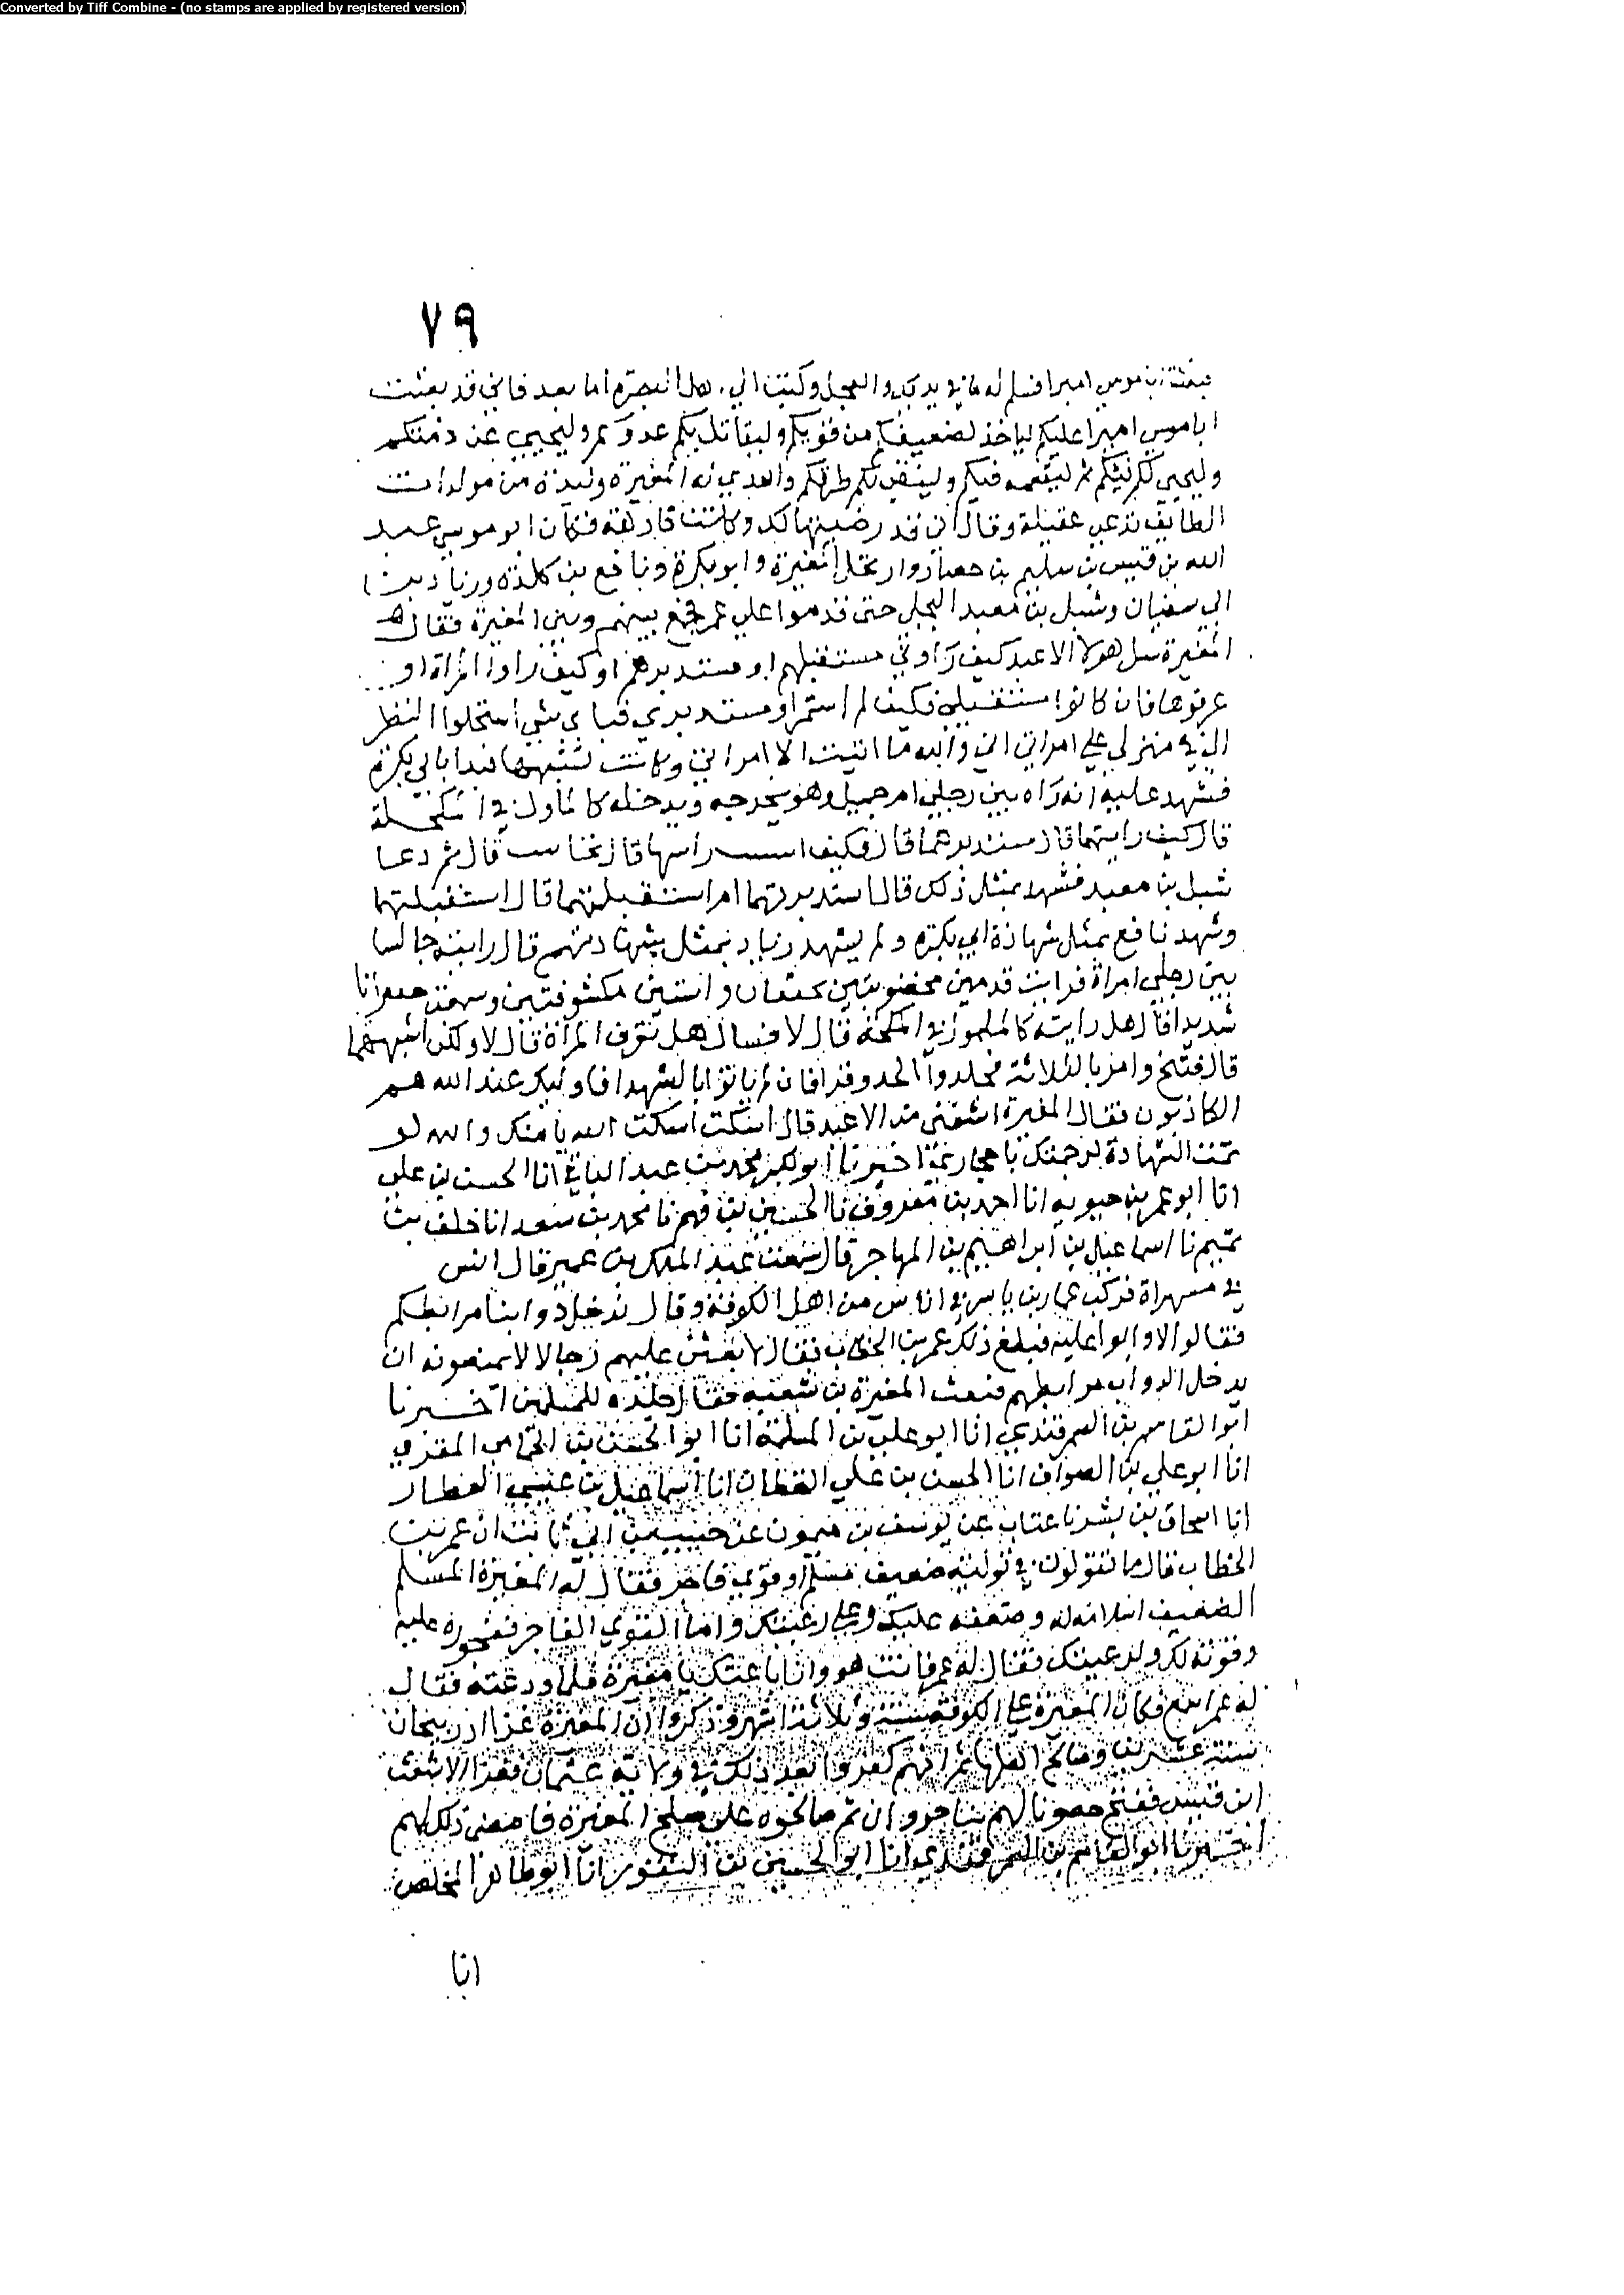 Converted by Tiff Combine - (no stamps are applied by registered version)
٧٩
بعثت ابا موسى اميرا فسلم له ما في يديك والعجل وكتب الى اهل البصرة اما بعد فاني قد بعثت
ابا موسى اميرا عليكم لياخذ لضعيفكم من قويكم وليقاتل بكم عدوكم وليحيي عن ذمتكم
وليحيى لكم فيئكم ثم ليقسمه فيكم ولينقى لكم طرقكم واهدى له المغيرة وليدة من مولدات
الطايف تدعى عقيلة وقال اني قد رضيتها لك وكانت فارهة فكان ابو موسى عبد
الله بن قيس بن سليم بن حضار وارتحل المغيرة وابو بكرة ونافع بن كلدة وزياد بن ا
ابي سفيان وشبل بن معبد البجلي حتى قدموا على عمر فجمع بينهم وبين المغيرة فقال
المغيرة سل هولا الاعبد كيف راوني مستقبلهم او مستدبرهم او كيف راوا المراة او
عرفوها فان كانوا مستقبلي فكيف لم استتر او مستدبري فباي شي استحلوا النظر
الي في منزلي على امراتي والله ما اتيت الا امراتي وكانت تشبهها فبدا بابي بكرة
فشهد عليه انه راه بين رجلي ام جميل وهو يخرجه ويدخله كالملول في المكحلة
قال كيف رايتهما قال مستدبرهما قال وكيف راسها قال تحاست قال ثم دعا
شبل بن معبد فشهد بمثل ذلك قال استدبرتهما ام استقبلتهما قال استقبلتهما
وشهد نافع بمثل شهادة ابي بكرة ولم يشهد زياد بمثل شهادتهم قال رايته جالسا
بين رجلي امراة فرايت قدمين مخضوبتين تخفقان واستين مكشوفتين وسمعت حفزانا
شديدا قال هل رايته كالملمول في المكحلة قال لا فسال هل تعرف المراة قال لا ولكن اشبهها
قال فتنح وامر بالثلاثة فجلدوا الحد وقرا فان لم ياتوا بالشهدا فاوليك عند الله هم
الكاذبون فقال المغيرة اشفني من الاعبد قال اسكت اسكت الله نامتك والله لو
تمت الشهادة لرجمتك باحجارك اخبرنا ابو بكر محمد بن عبد الباقي انا الحسن بن على
انا ابو عمر بن حيويه انا احمد بن معروف نا الحسين بن فهم نا محمد بن سعد انا خلف بن
تميم نا اسماعيل بن ابراهيم بن المهاجر قال سمعت عبد الملك بن عمير قال
فركب عمار بن ياسر في اناس من اهل الكوفة وقال ندخل دوابنا مرابطكم
فقالوا لا وابوا عليه فبلغ ذلك عمر بن الخطاب فقال لابعثن عليهم رجالا لا يمنعونه ان
يدخل الدواب مرابطهم فبعث المغيرة بن شعبة فقال للمسلمين اخبرنا
ابو القاسم بن السمرقندي انا ابو علي بن المسلمة انا ابو الحسن بن الحمامي المقري
انا ابو علي بن الصواف انا الحسن بن علي القطان انا اسماعيل بن عيسى العطار
انا اسحاق بن بشر نا عتاب عن يوسف بن ميمون عن حبيب بن ابي ثابت ان عمر بن
الخطاب قال ما تقولون في تولية ضعيف مسلم او قوي فاجر فقال له المغيرة المسلم
الضعيف اسلامه له وضعفه عليك وعلى رعيتك واما القوي الفاجر ففجوره عليه
وقوته لك ولرعيتك فقال له عمر فانت هو وانا باعثك يا مغيرة فلما ودعته فقال
له عمر فكان المغيرة على الكوفة سنة وثلاثة اشهر وذكروا ان المغيرة غزا اذربيجان
سنة عشرين وصالح اهلها ثم انهم كفروا بعد ذلك في ولاية عثمان فغزا الاشعث
ابن قيس ففتح حصونا لهم بناجروان ثم صالحوه على صلح المغيرة فامضى ذلك لهم
اخبرنا ابو القاسم بن السمرقندي انا ابو الحسين بن النقور انا ابو طاهر المخلص
انا